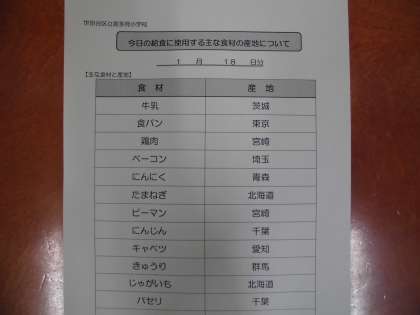 世田谷区立喜多見小学校
今日の給食に使用する主な食材の産地について
1 月 18 日分
【主な食材と産地】
食 材 産 地
牛乳 茨城
食パン 東京
鶏肉 宮崎
ベーコン 埼玉
にんにく 青森
たまねぎ 北海道
ピーマン 宮崎
にんじん 千葉
キャベツ 愛知
きゅうり 群馬
じゃがいも 北海道
パセリ 千葉